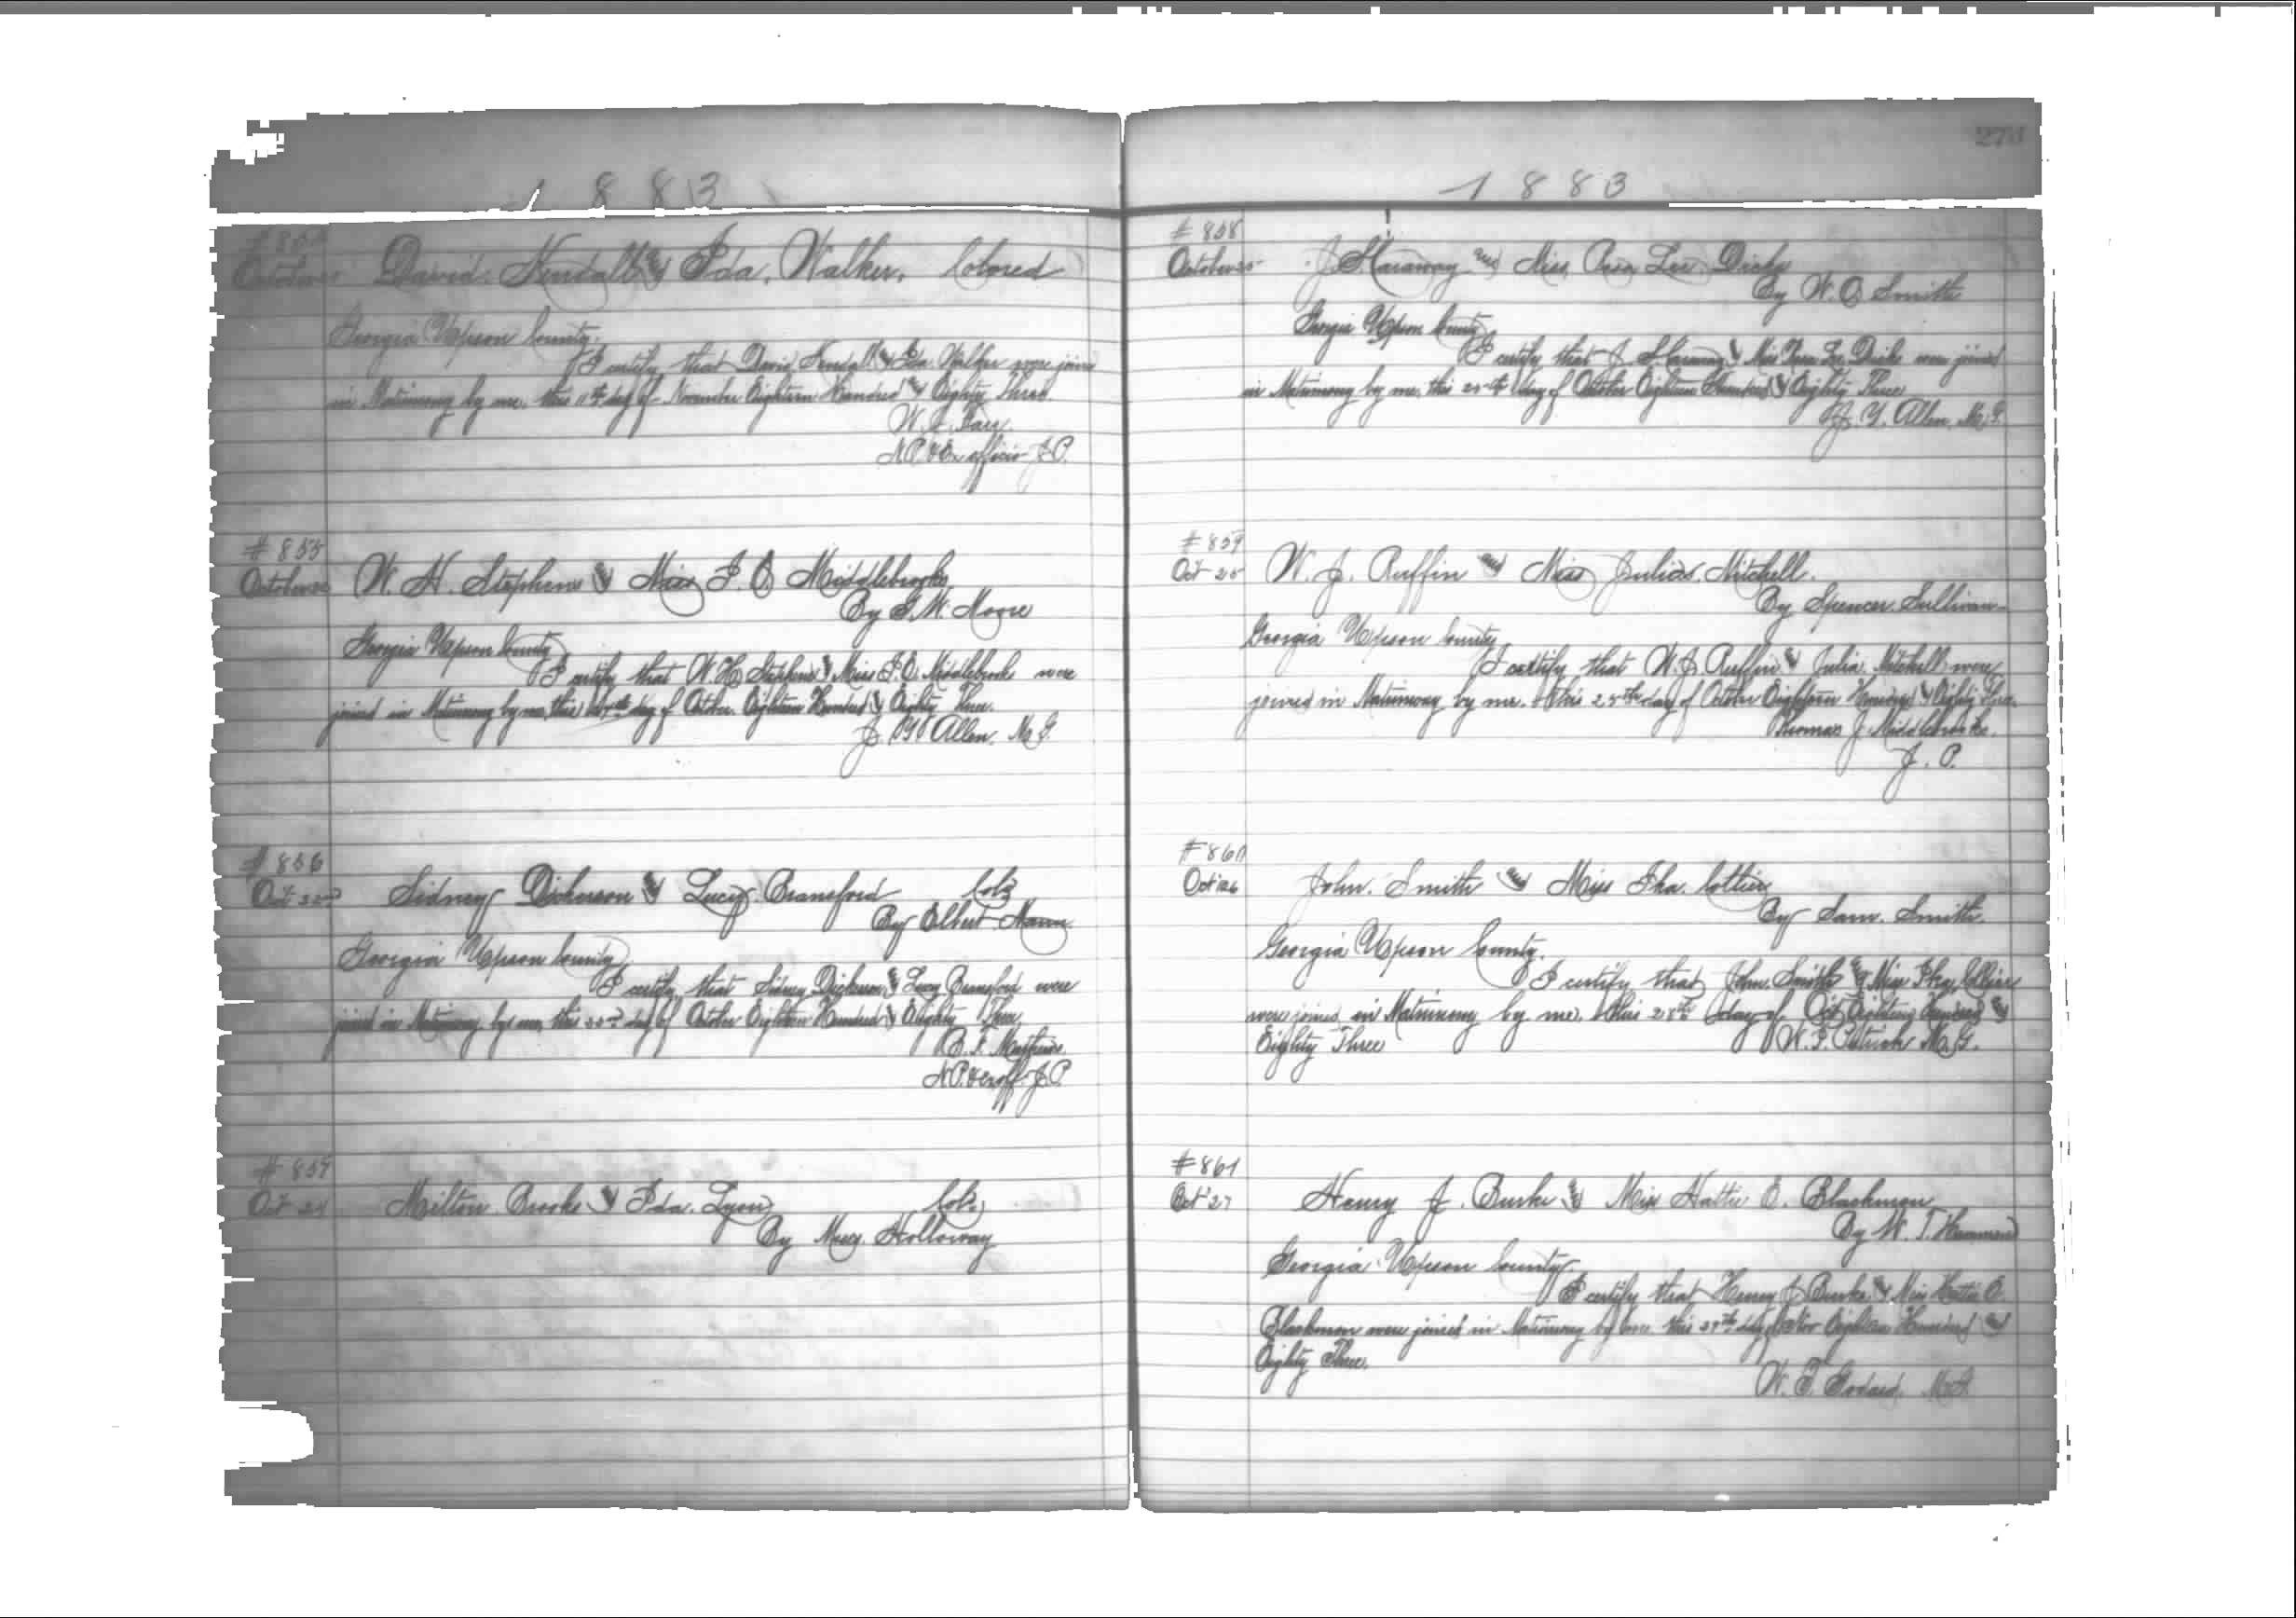 1883
October David Kendall & Ida Walker, Colored
Georgia Upson County.
I certify that David Kendall & Ida Walker were joined
in Matrimony by me, this 11th day of November Eighteen Hundred & Eighty Three.
W. J.
N.P. & Ex officio J.P.
# 855
October W. H. Stephens & Miss J. O. Middlebrooks
By G. W. Moore
Georgia Upson County
I certify that W. H. Stephens & Miss Middlebrooks were
joined in Matrimony by me, this day of October Eighteen Hundred & Eighty Three.
Allen. M.G.
# 856
Oct 22nd Sidney Dickerson & Lucy Bransford Cold
By Elbert Mann
Georgia Upson County
I certify that Sidney Dickerson & Lucy Bransford were
joined in Matrimony by me, this 22nd day of October Eighteen Hundred & Eighty Three
N.P. & exoff. J.P.
# 857
Oct 24 Milton Brooks & Ida Lyon Col.
By Holloway
1883
# 858
October J. Haraway and Miss Lee Dicks
By W. O. Smith
Georgia Upson County
I certify that J. Haraway & Miss Lee Dicks were joined
in Matrimony by me, this 25th day of October Eighteen Hundred & Eighty Three
J. Y. Allen, M.G.
# 859
Oct 25 W. J. Ruffin and Miss Julia Mitchell.
By Spencer Sullivan
Georgia Upson County
I certify that W. J. Ruffin & Julia Mitchell were
joined in Matrimony by me. this 25th day of October Eighteen Hundred & Eighty Three.
Thomas J. Middlebrooks.
J. P.
# 860
Oct 26 John. Smith and Miss
By Sam. Smith.
Georgia Upson County.
I certify that John. Smith & Miss
were joined in Matrimony by me, this 28th day of Oct Eighteen Hundred &
Eighty Three
M.G.
# 861
Oct 27 Henry J. Burke & Miss Hattie E. Blackmon
By W. T.
Georgia Upson County.
I certify that Henry J Burke & Miss Hattie E.
Blackmon were joined in Matrimony by me this day Eighteen Hundred &
Eighty Three.
M.G.